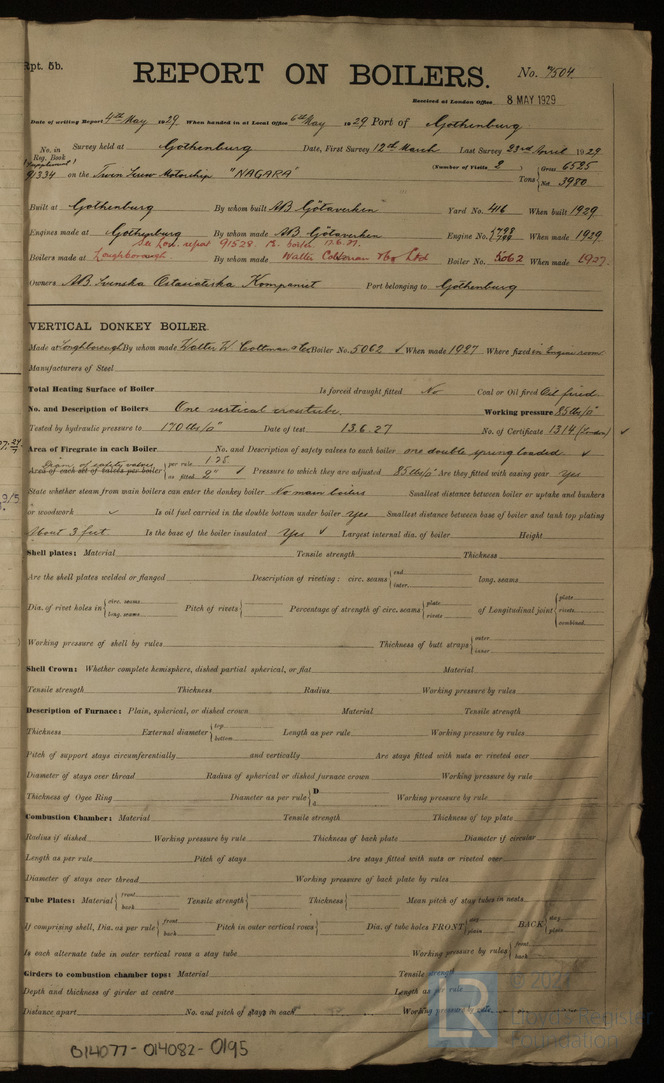 Rpt. 5b.
REPORT ON BOILERS.
No. 7504.
Received at London Office 8 MAY 1929
Date of writing Report 4th May 1929 When handed in at Local Office 6th May 1929 Port of Gothenburg
No. in Reg. Book Survey held at Gothenburg Date, First Survey 12th March Last Survey 23rd April 1929
(Number of Visits 2 )
91334 on the Twin Screw Motorship "NAGARA" Tons { Gross 6525 Net 3980
Built at Gothenburg By whom built AB Götaverken Yard No. 416 When built 1929
Engines made at Gothenburg By whom made AB Götaverken Engine No. 798 799 When made 1929
See Lon. report 91528 B. boiler 17.6.27.
Boilers made at Loughborough By whom made Walter Coltman & Co Ltd Boiler No. 5062 When made 1927.
Owners AB Svenska Ostasiatiska Kompaniet Port belonging to Gothenburg
VERTICAL DONKEY BOILER.
Made at Loughborough By whom made Walter W. Coltman & Co Boiler No. 5062 When made 1927 Where fixed in Engine room
Manufacturers of Steel
Total Heating Surface of Boiler Is forced draught fitted No Coal or Oil fired Oil fired
No. and Description of Boilers One vertical crosstube. Working pressure 85 lbs/□"
Tested by hydraulic pressure to 170 lbs/□" Date of test 13.6.27 No. of Certificate 1314 (London)
Area of Firegrate in each Boiler No. and Description of safety valves to each boiler one double spring loaded.
Diam. of safety valves
Area of each set of valves per boiler { per rule 1.75 as fitted 2" Pressure to which they are adjusted 85 lbs/□" Are they fitted with easing gear Yes
State whether steam from main boilers can enter the donkey boiler No main boilers Smallest distance between boiler or uptake and bunkers
or woodwork Is oil fuel carried in the double bottom under boiler Yes Smallest distance between base of boiler and tank top plating
About 3 feet Is the base of the boiler insulated Yes Largest internal dia. of boiler Height
Shell plates: Material Tensile strength Thickness
Are the shell plates welded or flanged Description of riveting: circ. seams { end inter. long. seams
Dia. of rivet holes in { circ. seams long. seams Pitch of rivets { Percentage of strength of circ. seams { plate rivets of Longitudinal joint { plate rivets combined
Working pressure of shell by rules Thickness of butt straps { outer inner
Shell Crown: Whether complete hemisphere, dished partial spherical, or flat Material
Tensile strength Thickness Radius Working pressure by rules
Description of Furnace: Plain, spherical, or dished crown Material Tensile strength
Thickness External diameter { top bottom Length as per rule Working pressure by rules
Pitch of support stays circumferentially and vertically Are stays fitted with nuts or riveted over
Diameter of stays over thread Radius of spherical or dished furnace crown Working pressure by rule
Thickness of Ogee Ring Diameter as per rule { D d Working pressure by rule
Combustion Chamber: Material Tensile strength Thickness of top plate
Radius if dished Working pressure by rule Thickness of back plate Diameter if circular
Length as per rule Pitch of stays Are stays fitted with nuts or riveted over
Diameter of stays over thread Working pressure of back plate by rules
Tube Plates: Material { front back Tensile strength { Thickness { Mean pitch of stay tubes in nests
If comprising shell, Dia. as per rule { front back Pitch in outer vertical rows { Dia. of tube holes FRONT { stay plain BACK { stay plain
Is each alternate tube in outer vertical rows a stay tube Working pressure by rules { front back
Girders to combustion chamber tops: Material Tensile strength
Depth and thickness of girder at centre Length as per rule
Distance apart No. and pitch of stays in each Working pressure by rule
Lloyd's Register
Foundation
014077-014082-0195